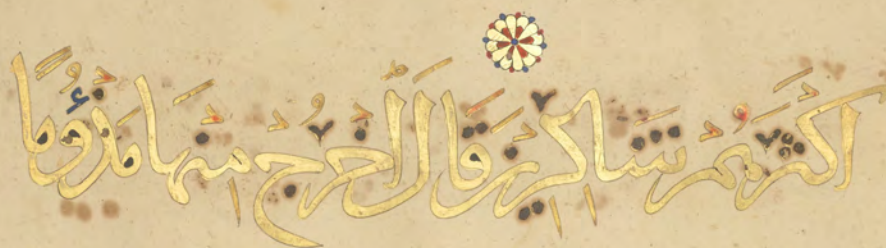 أَكْثَرَهُمْ شَٰكِرِينَ قَالَ ٱخْرُجْ مِنْهَا مَذْءُومًا